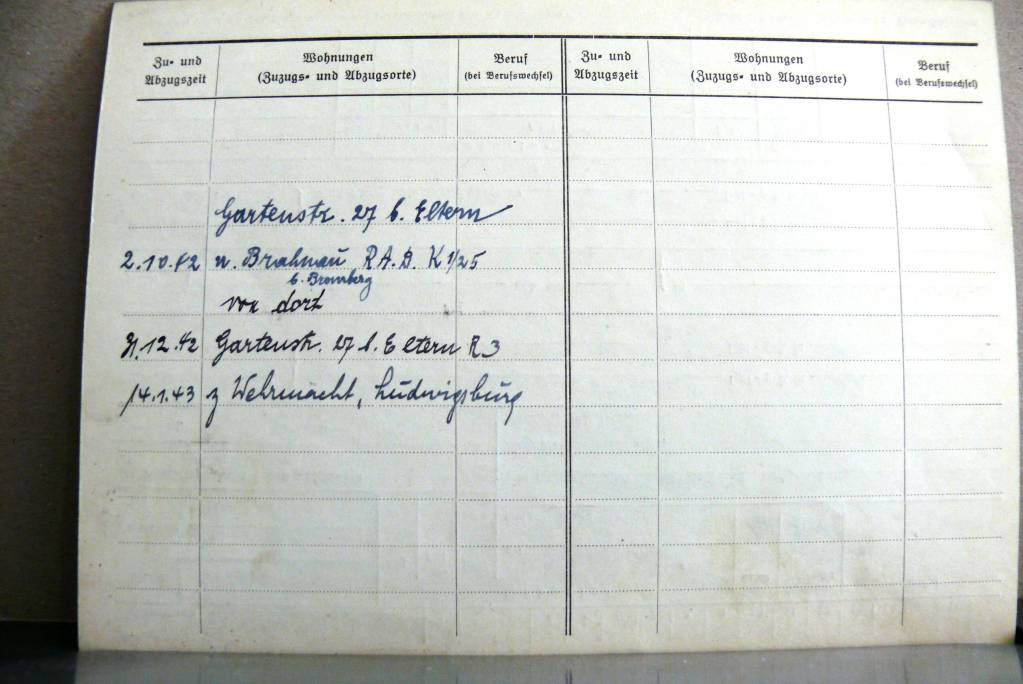 Zu- und Abzugszeit
Wohnungen
(Zuzugs- und Abzugsorte)
Beruf
(bei Berufswechsel)
Zu- und Abzugszeit
Wohnungen
(Zuzugs- und Abzugsorte)
Beruf
(bei Berufswechsel)
Gartenstr. 27 b. Eltern
2.10.42 n. Brahnau R.A.D. K 1/25
b. Bromberg
von dort
31.12.42 Gartenstr. 27 b. Eltern R3
14.1.43 z Wehrmacht, Ludwigsburg